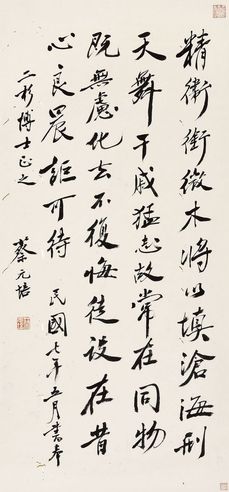 精衛銜微木將以填滄海刑
天舞干戚猛志故常在同物
既無慮化去不復悔徒設在昔
心良晨詎可待 民國七年五月書奉
博士正之 蔡元培